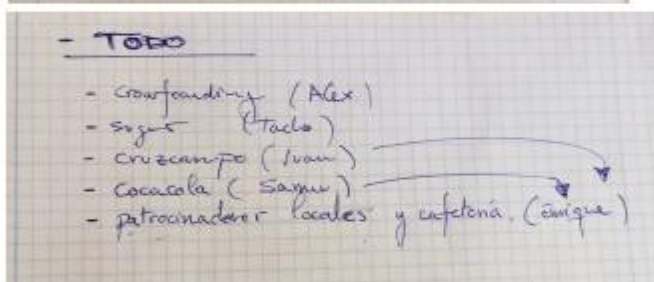 - TODO
- Crowfounding (Alex)
- (Tacho)
- cruzcampo (Ivan)
- Cocacola (Samu)
- patrocinadores locales y cafetería. (Enrique)